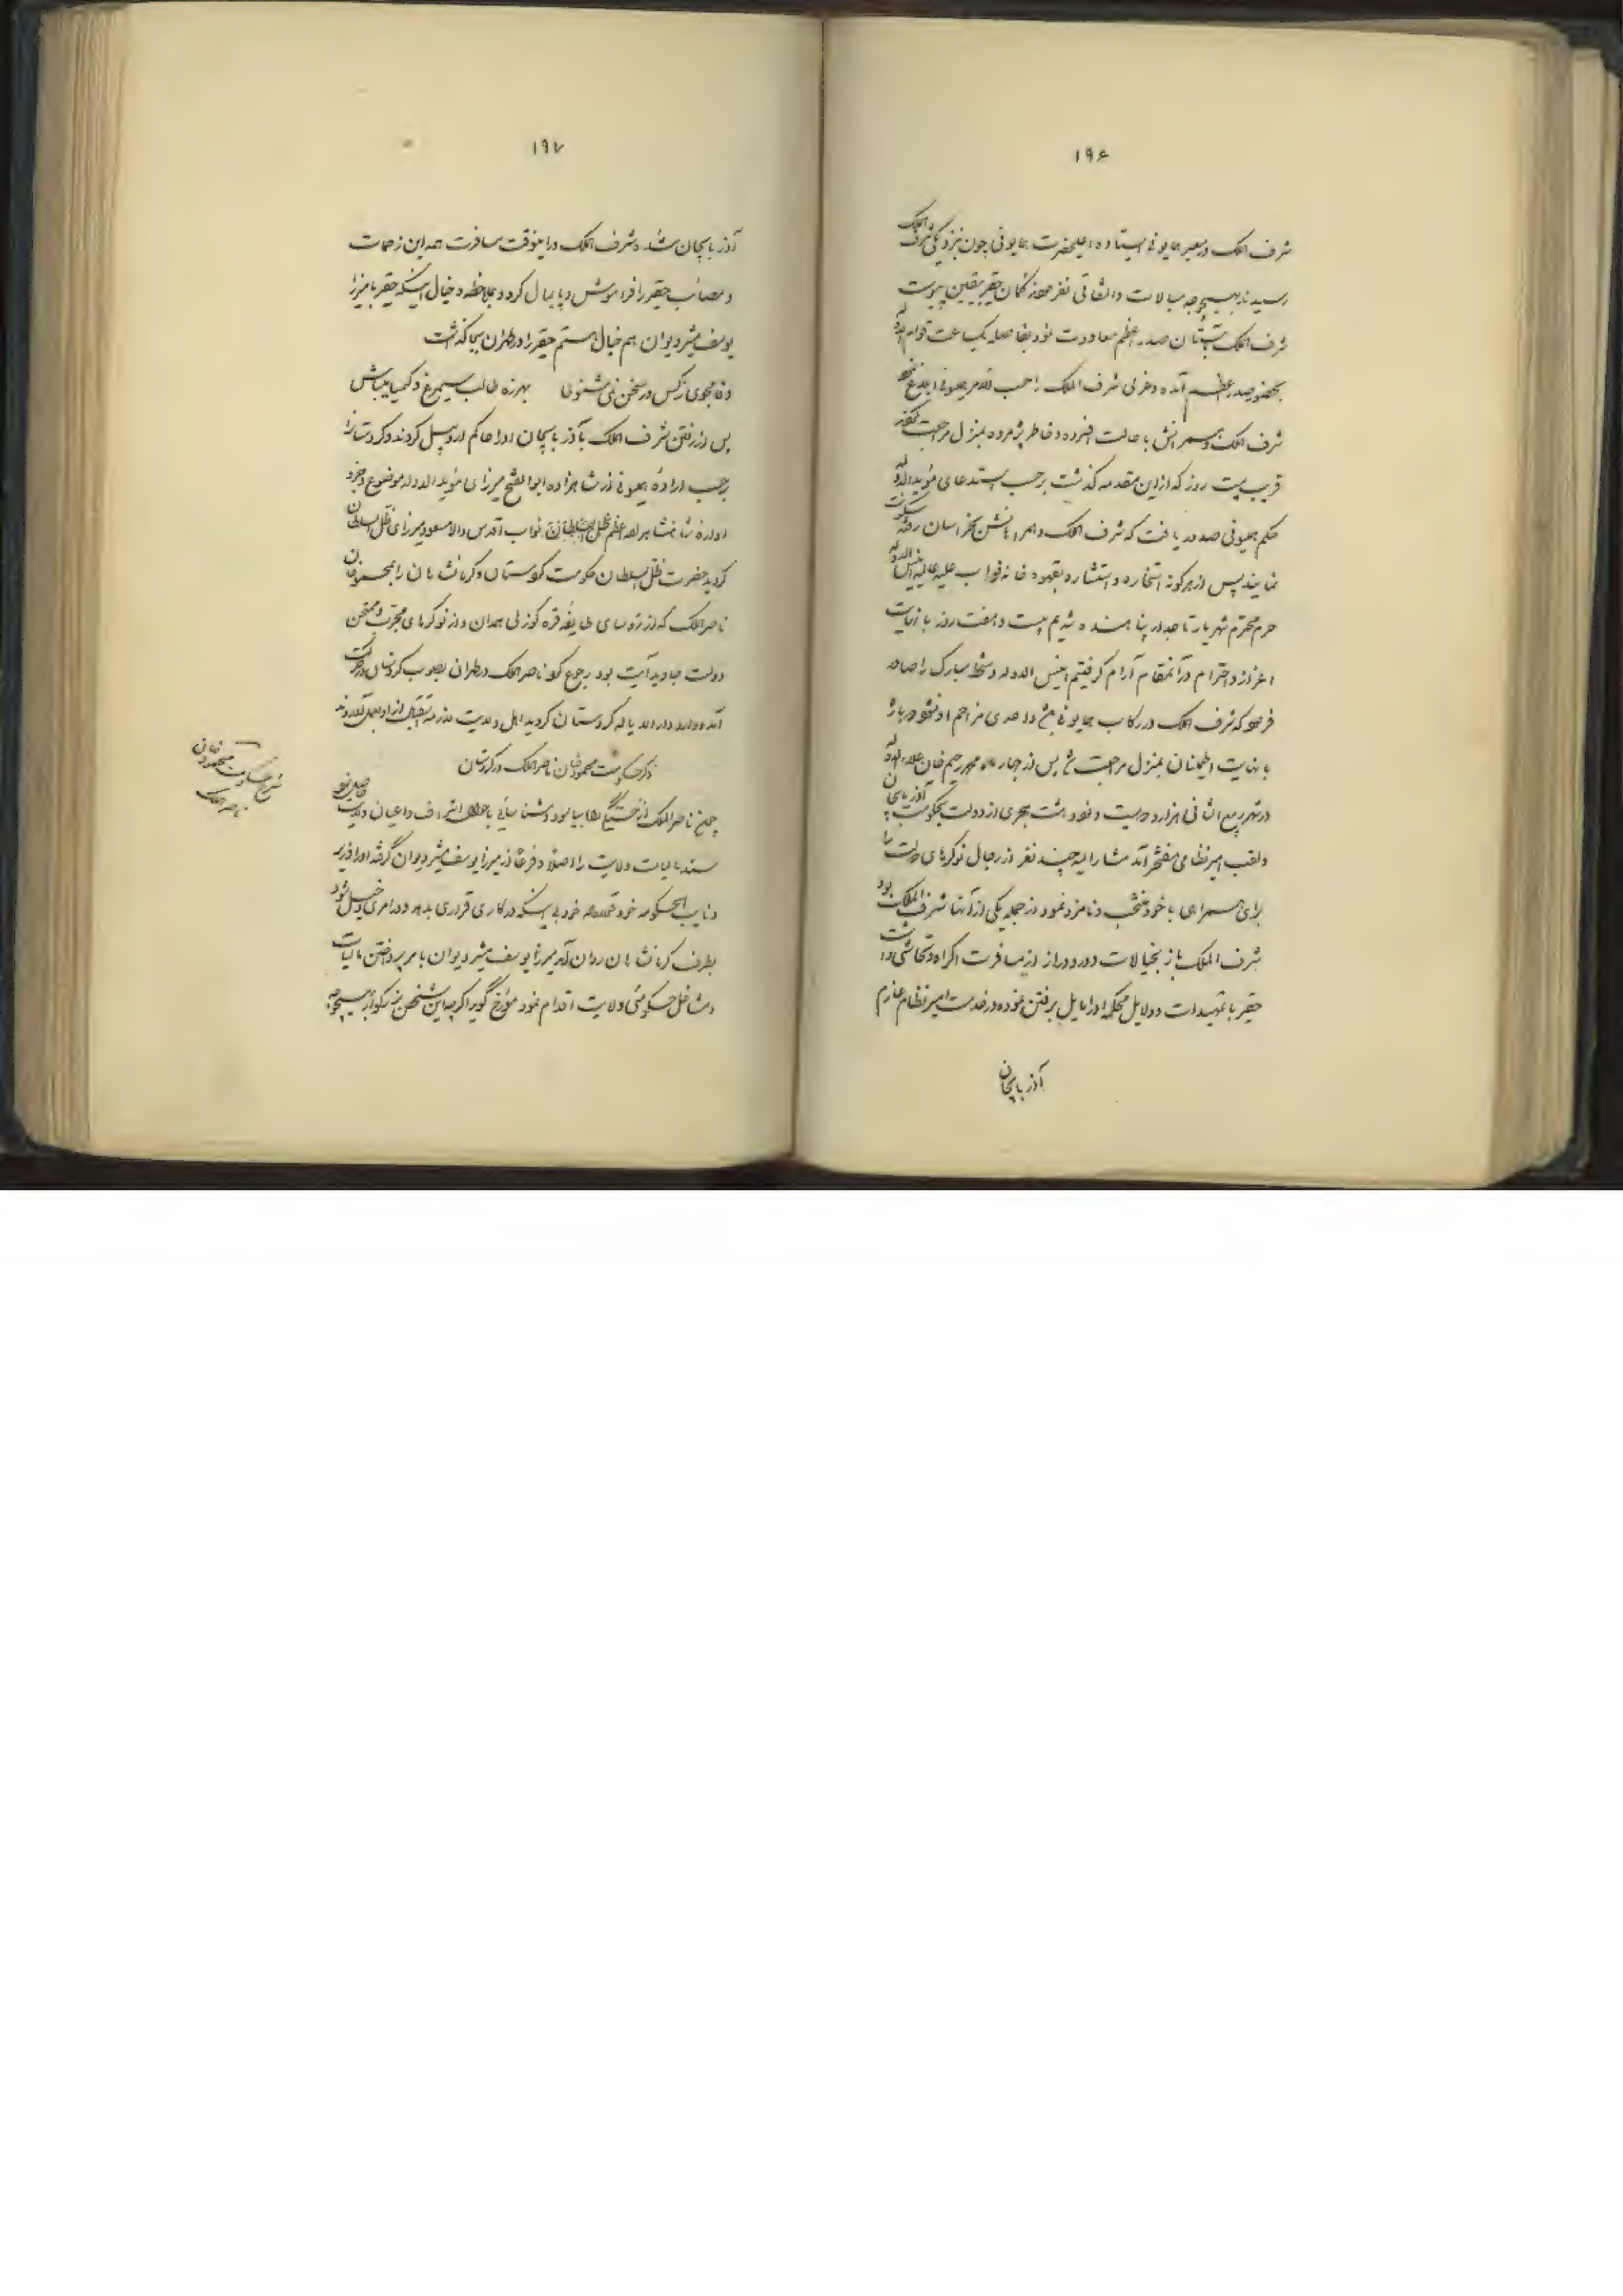 ۱۹۶
شرف الملک در معبر همایونی ایستاده اعلیحضرت همایونی چون بنزدیکی شرف الملک
رسیدند بهیچوجه مبالات و التفاتی نفرموده گمان حقیر بیقین پیوست
شرف الملک بشبستان صدر اعظم معاودت نمود بفاصله یکساعت قوام الدوله
بحضور صدر اعظم آمده و عزلی شرف الملک را حسب الامر همیونی ابلاغ نمود
شرف الملک و همراهانش با حالت افسرده و خاطر پژمرده بمنزل مراجعت نمودند
قریب بیست روز که از این مقدمه گذشت برحسب استدعای مؤید الدوله
حکم همیونی صدور یافت که شرف الملک و همراهانش بخراسان رفته سکونت
نمایند پس از هرگونه استخاره و استشاره بقهوه خانه نواب علیه عالیه انیس الدوله
حرم محترم شهریار تاجدار پناهنده شدیم بیست و هفت روز با نهایت
اعزاز و احترام در آنمقام آرام گرفتیم انیس الدوله دستخط مبارک را صادر
فرمود که شرف الملک در رکاب همایونی باشد و احدی مزاحم او نشود دوباره
با نهایت اطمینان بمنزل مراجعت شد پس از چهار ماه محمد رحیم خان علاء الدوله
در شهر ربیع الثانی هزار و دویست و نود و هشت هجری از دولت بحکومت آذربایجان
و لقب امیرنظامی مفتخر آمد مشارالیه چند نفر از رجال نوکرهای دولت را
برای همراهی با خود منتخب و نامزد نمود از جمله یکی از آنها شرف الملک بود
شرف الملک باز بخیالات دور و دراز از مسافرت اکراه و تحاشی داشت
حقیر با تمهیدات و دلایل محکمه او را مایل برفتن نموده در خدمت امیر نظام عازم
آذربایجان
۱۹۷
آذربایجان شده شرف الملک در اینوقت مسافرت همه این زحمات
و مصائب حقیر را فراموش و پایمال کرد و بملاحظه و خیال اینکه حقیر با میرزا
یوسف مشیر دیوان هم خیال هستم حقیر را در طهران بجا گذاشت
وفا مجوی ز کس ور سخن نمی شنوی بهرزه طالب سیمرغ و کیمیا میباش
پس از رفتن شرف الملک بآذربایجان او را حاکم اردبیل کردند و کردستان را
برحسب اراده همیونی از شاهزاده ابوالفتح میرزای مؤید الدوله موضوع و جزو
اداره شاهنشاهزاده اعظم ظل السلطان نواب اقدس والا مسعود میرزای ظل السلطان
گردید حضرت ظل السلطان حکومت کردستان و کرمانشاهان را بمحمود خان
ناصر الملک که از رؤسای طایفه قره گوزلی همدان و از نوکرهای مجرب و ممتحن
دولت جاوید آیت بود رجوع کرد ناصر الملک در طهران بصوب کردستان در حرکت
آمده وارد دارالایاله کردستان گردید اهل ولایت لازمه استقبال از او بعمل آوردند
ذکر حکومت محمود خان ناصر الملک در کردستان
چون ناصر الملک از خستگی راه بیاسود و شناسایی با عموم اشراف و اعیان ولایت حاصل نمود
سند مالیات ولایت را اصلاً و فرعاً از میرزا یوسف مشیر دیوان گرفته او را وزیر
و نایب الحکومه خود قرار داد خود بی اینکه در کاری قراری بدهد و در امری دخیل شود
بطرف کرمانشاهان روان آمد میرزا یوسف مشیر دیوان بامر پرداختن مالیات
و مشاغل حکومتی ولایت اقدام نمود مؤرخ گوید اگرچه این شخص بزرگوار بهیچوجه
شرح حکومت محمود خان
ناصر الملک